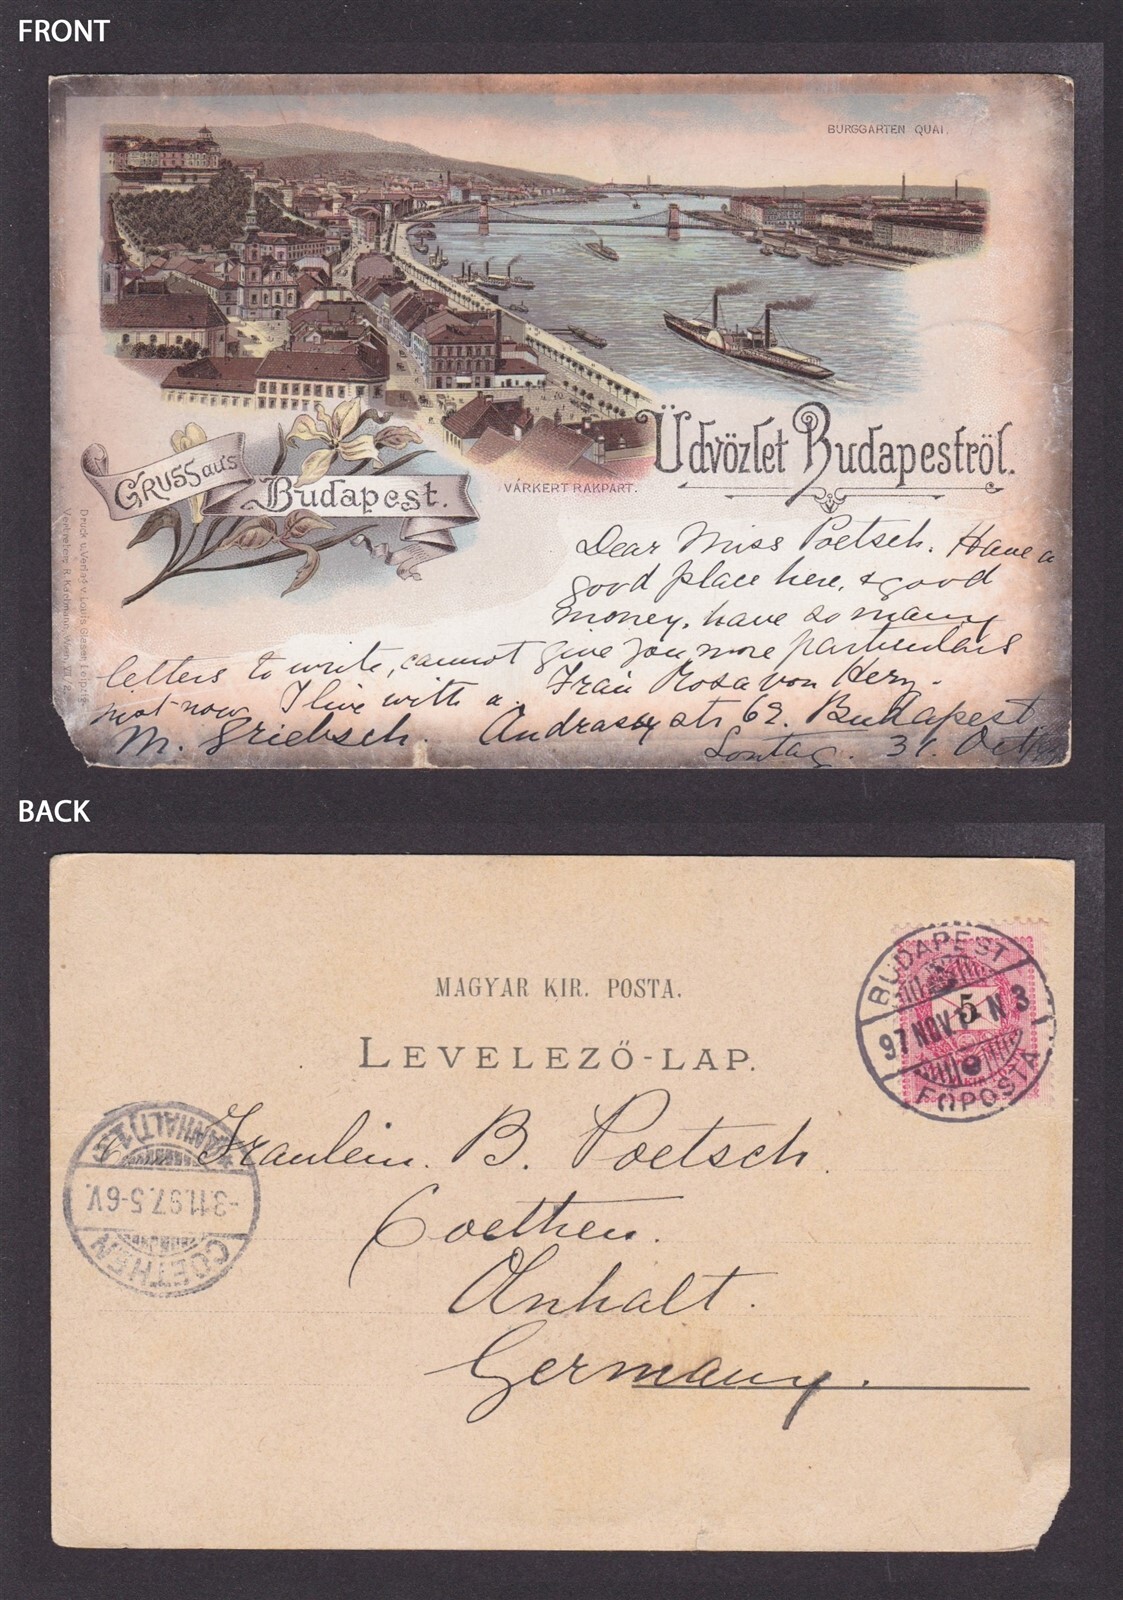 FRONT
BURGGARTEN QUAI.
Üdvözlet Budapestről.
GRUSS aus
Budapest.
VÁRKERT RAKPART.
Druck u. Verlag v. Louis Glaser, Leipzig.
Vertretung: R. Kaufmann, Wien,
Dear Miss Poetsch. Have a
good place here, & good
money, have so many
letters to write, cannot give you more particulars
just now. I live with a Frau Rosa von Herz-
M. Griebsch. Andrassy str 62. Budapest
Sontag. 31. Oct
BACK
MAGYAR KIR. POSTA.
LEVELEZŐ-LAP.
BUDAPEST
5
97 NOV. N 3
KIR
FŐPOSTA
Fraulein. B. Poetsch.
Coethen.
Anhalt.
Germany.
COETHEN
-3.11.97. 5-6V.
(ANHALT) 1